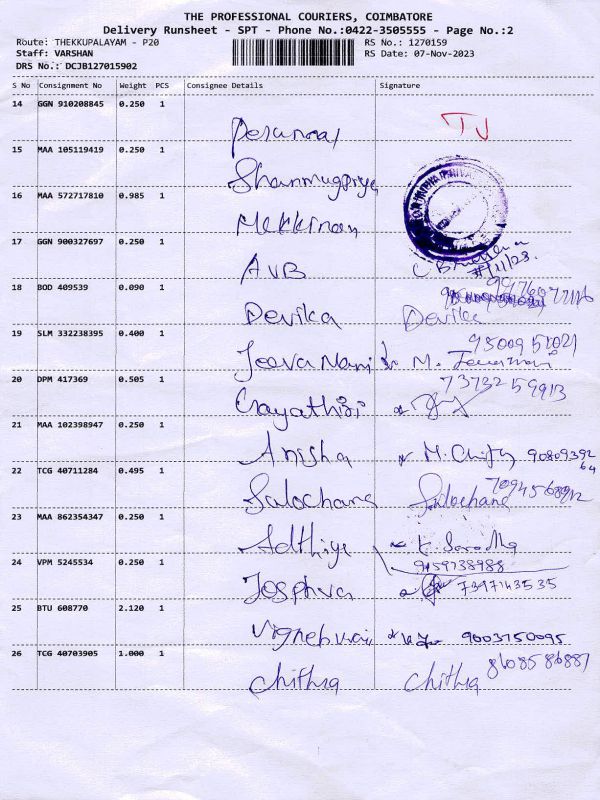 THE PROFESSIONAL COURIERS, COIMBATORE
Delivery Runsheet - SPT - Phone No.:0422-3505555 - Page No.:2
Route: THEKKUPALAYAM - P20 RS No.: 1270159
Staff: VARSHAN RS Date: 07-Nov-2023
DRS No.: DCJB127015902
S No Consignment No Weight PCS Consignee Details Signature
14 GGN 910208845 0.250 1
Perumal TJ
15 MAA 105119419 0.250 1
Shanmugpriya
16 MAA 572717810 0.985 1
Mekkinan
17 GGN 900327697 0.250 1
AVB
18 BOD 409539 0.090 1
Devika Devika
19 SLM 332238395 0.400 1 9500951021
Jeeva Mani M. Jeevamani
20 DPM 417369 0.505 1 7373259913
Gayathiri
21 MAA 102398947 0.250 1
Anisha 9080939264
22 TCG 40711284 0.495 1 7094568912
Salochana Salochana
23 MAA 862354347 0.250 1
Adthiye
24 VPM 5245534 0.250 1 9159738988
Josphva 7397143535
25 BTU 608770 2.120 1
9003150095
26 TCG 40703905 1.000 1 8608586887
Chithra Chithra